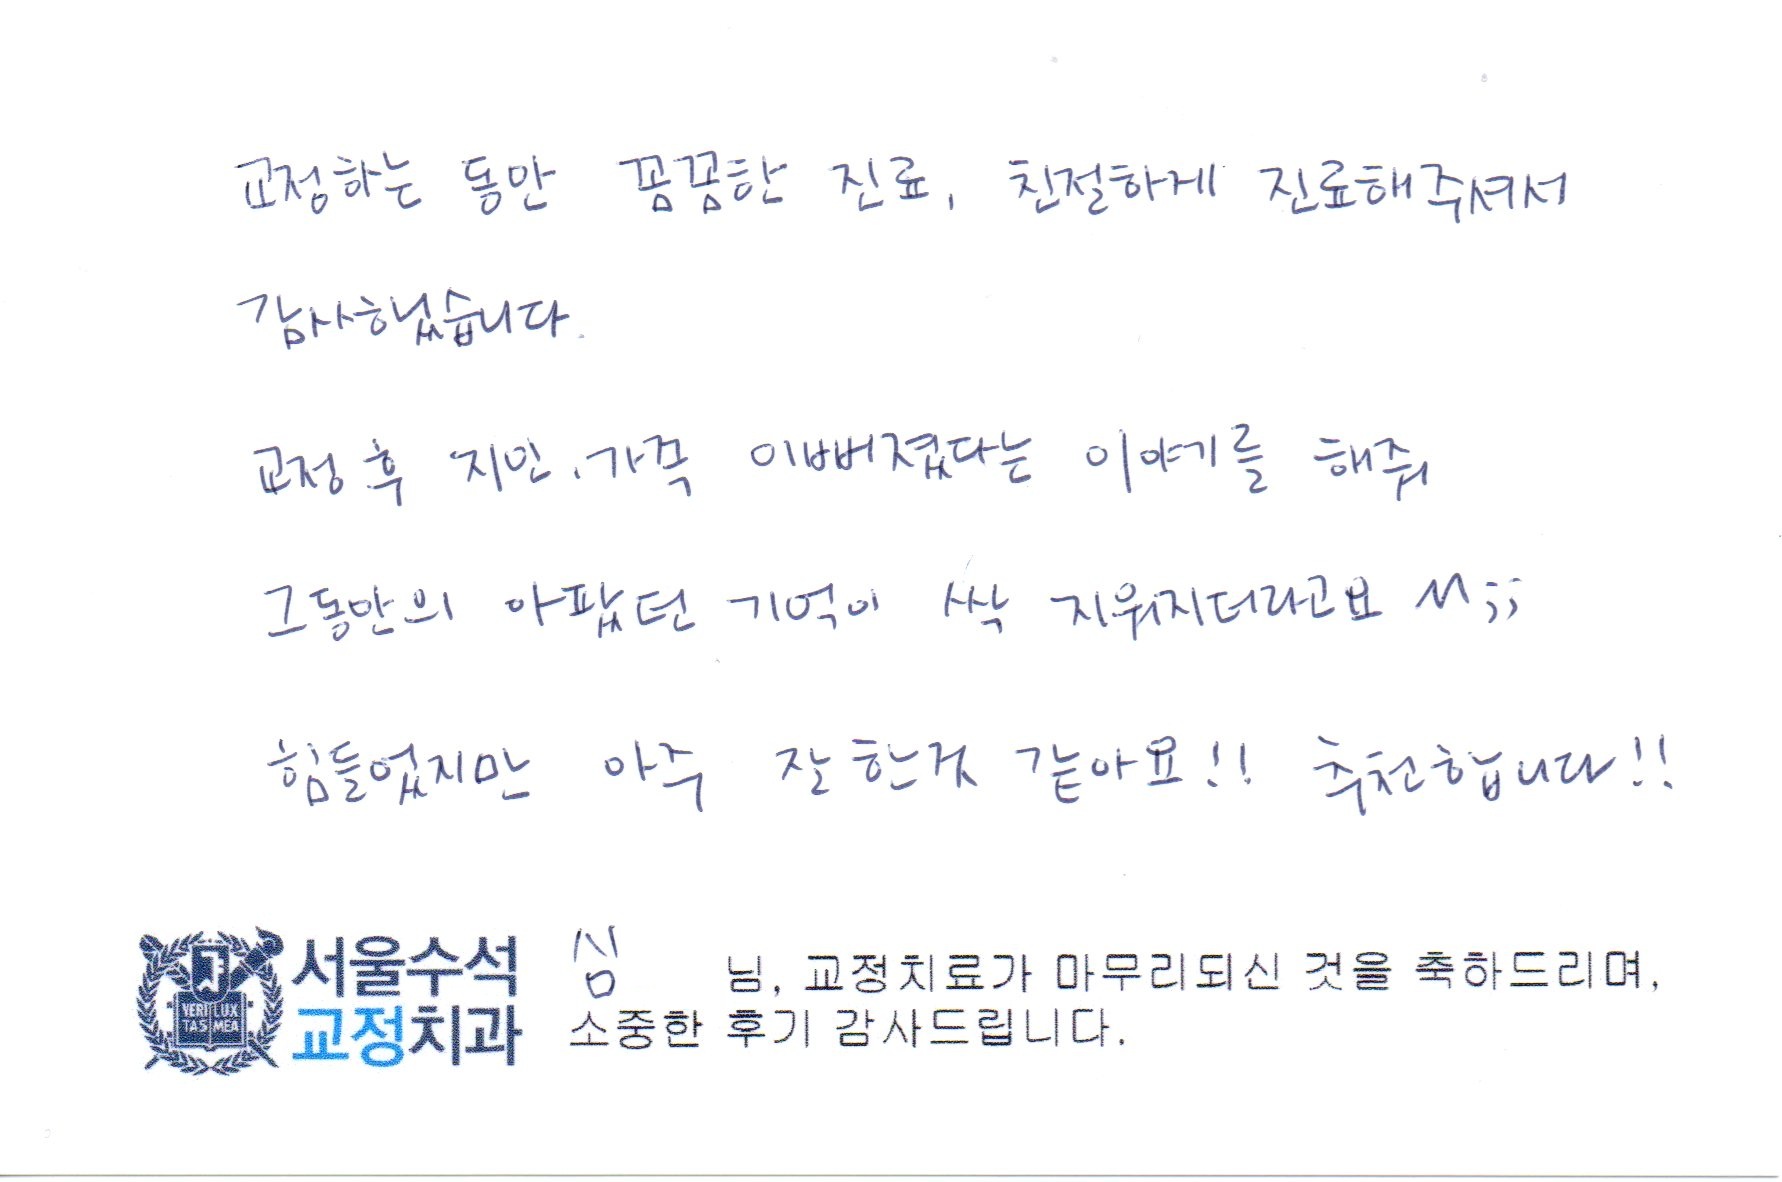 교정하는 동안 꼼꼼한 진료, 친절하게 진료해주셔서
감사했습니다.
교정 후 지인.가족 이뻐졌다는 이야기를 해줘
그동안의 아팠던 기억이 싹 지워지더라고요 ^^;;
힘들었지만 아주 잘한것 같아요!! 추천합니다!!
서울수석
교정치과
VERI LUX
TAS MEA
심 님, 교정치료가 마무리되신 것을 축하드리며,
소중한 후기 감사드립니다.